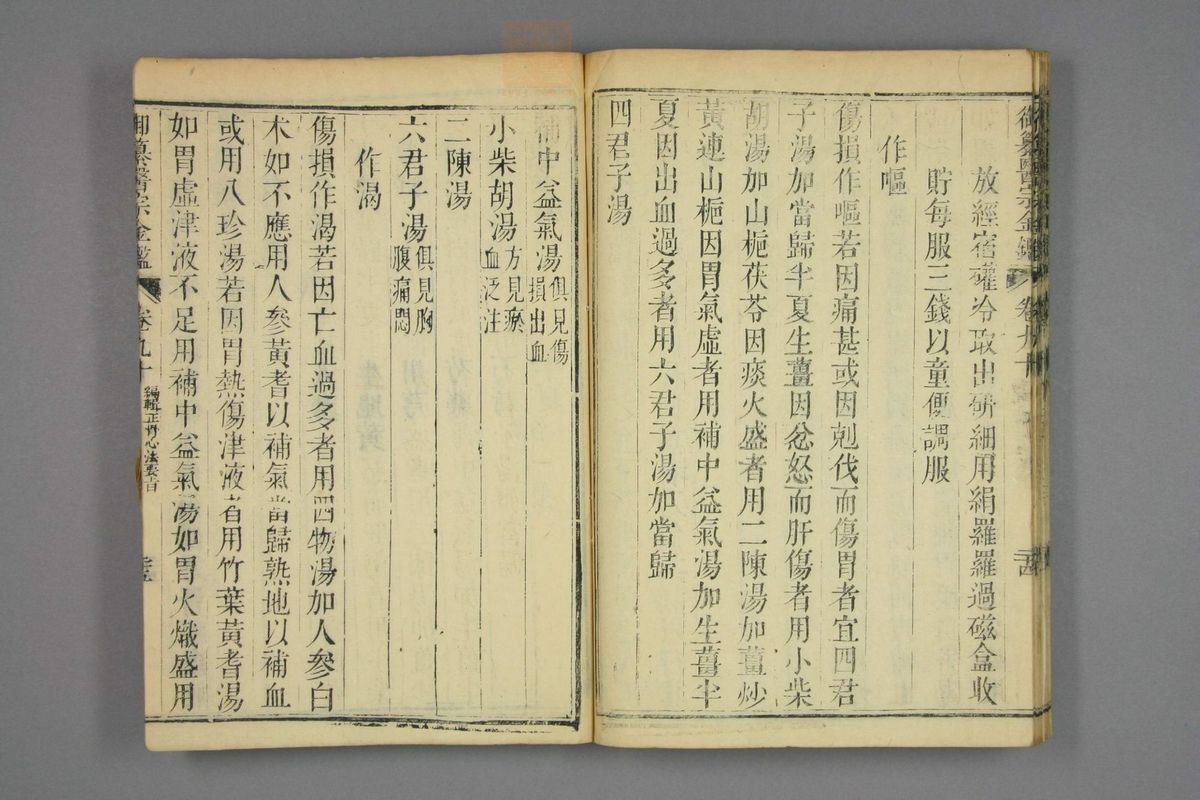 御纂醫宗金鑑 卷九十 
放經宿確冷取出硏細用絹羅羅過磁盒收
貯每服三錢以童便調服
作嘔
傷損作嘔若因痛甚或因剋伐而傷胃者宜四君
子湯加當歸半夏生薑因忿怒而肝傷者用小柴
胡湯加山梔茯苓因痰火盛者用二陳湯加薑炒
黃連山梔因胃氣虛者用補中益氣湯加生薑半
夏因出血過多者用六君子湯加當歸
四君子湯
補中益氣湯 俱見傷損出血
小柴胡湯 方見瘀血泛注
二陳湯
六君子湯 俱見胸腹痛悶
作渴
傷損作渴若因亡血過多者用四物湯加人參白
术如不應用人參黃耆以補氣當歸熟地以補血
或用八珍湯若因胃熱傷津液者用竹葉黃耆湯
如胃虛津液不足用補中益氣湯如胃火熾盛用
御纂醫宗金鑑 卷九十 編輯正骨心法要旨